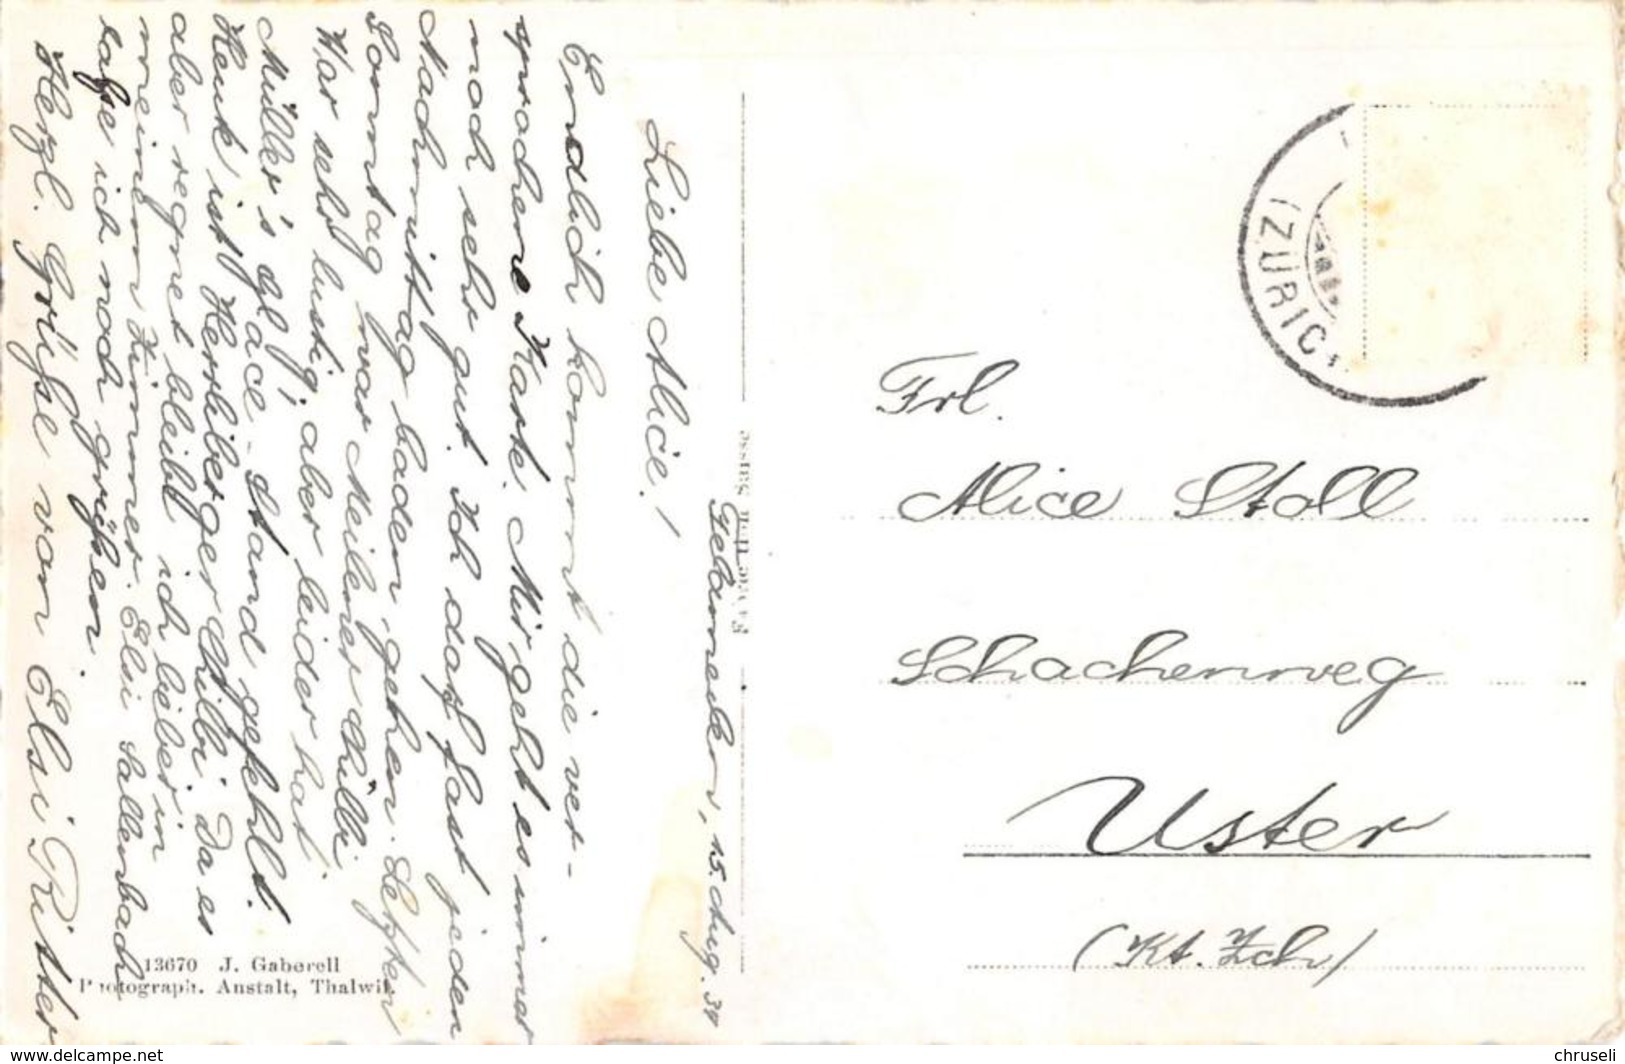 Feldmeilen, 15. Aug. 34
Liebe Alice!
Endlich kommt die ver-
sprochene Karte. Mir geht es immer
noch sehr gut. Ich darf fast jeden
Nachmittag baden gehen. Letzten
Sonntag war Meilener Chilbi
War sehr lustig, aber leider hat
Müller's glace-Stand gefehlt.
Heut ist Herrliberger Chilbi Da es
aber regnet bleibt ich lieber in
meinem Zimmer. Elsi Sallenbach
lasse ich noch grüßen.
Herzl. Grüße von Elsi Ritter
Frl.
Alice Stoll
Schachenweg
Uster
(Kt. Zch)
(ZÜRIC
13670 J. Gaberell
Photograph. Anstalt, Thalwil.
www.delcampe.net
chruseli